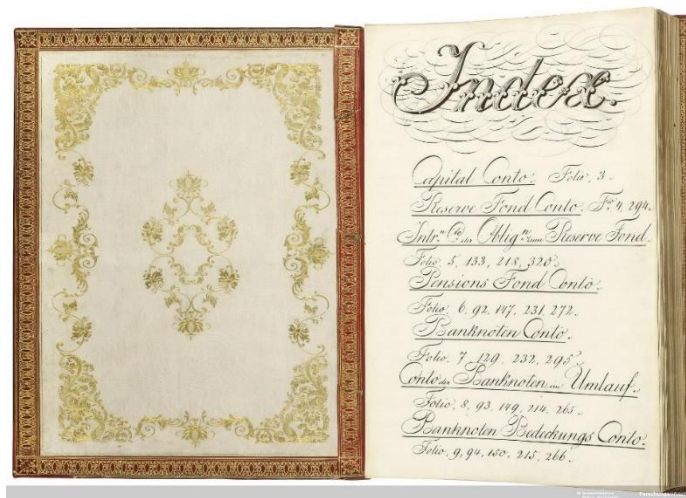 Index.
Capital Conto. Folio, 3.
Reserve Fond Conto. Fo. 4, 294.
Intr.n Co. der Oblig.n zum Reserve Fond.
Folio, 5, 133, 218, 320.
Pensions Fond Conto.
Folio, 6, 92, 147, 231, 272.
Banknoten Conto.
Folio, 7, 129, 232, 295.
Conto der Banknoten im Umlauf.
Folio, 8, 93, 149, 214, 265.
Banknoten Bedeckungs Conto.
Folio, 9, 94, 150, 215, 266.